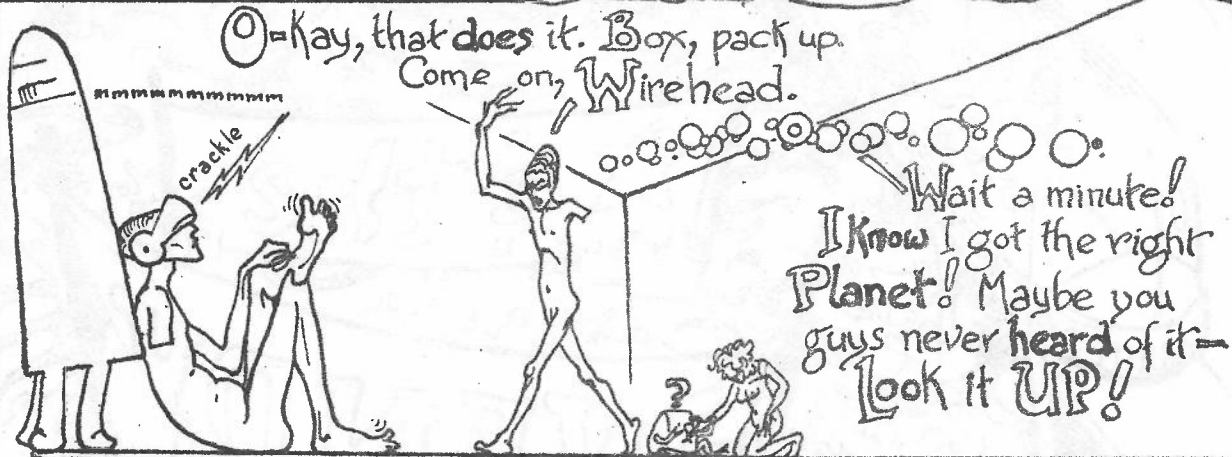 O-kay, that does it. Box, pack up.
Come on, Wirehead.
mmmmmmmmmmm
crackle
Wait a minute!
I know I got the right
Planet! Maybe you
guys never heard of it-
Look it UP!
?